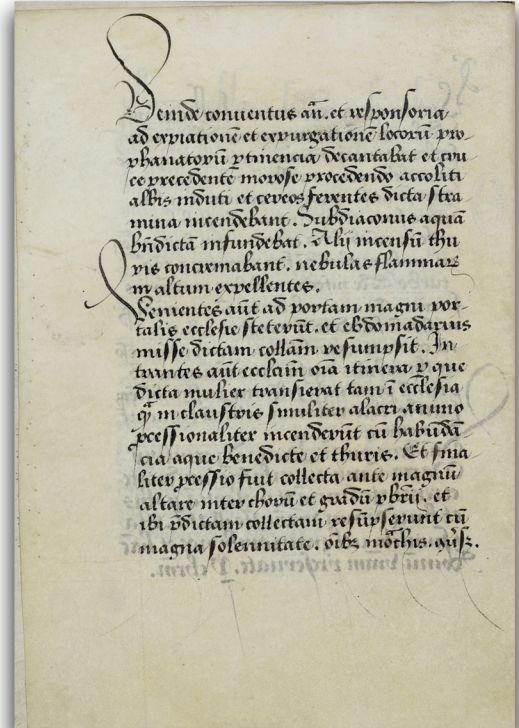 Deinde conuentus añ. et responsoria
ad expiationẽ et expurgationẽ locorũ pro
phanatorũ ꝑtinencia decantabat et cru
ce precedente morose procedendo accoliti
albis induti et cereos ferentes dicta stra
mina incendebant. Subdiaconus aquã
bñdictã infundebat. Alij incensũ thu
ris concremabant. nebulas flammarꝝ
in altum expellentes.
Venientes aũt ad portam magni por-
talis ecclesie steterũt. et ebdomadarius
misse dictam collãm resumpsit. In-
trantes aũt ecclẽm oĩa itinera ꝑ que
dicta mulier transierat tam ĩ ecclesia
ꝗ̃ in claustris similiter alacri animo
ꝓcessionaliter incenderũt cũ habũdã-
cia aque benedicte et thuris. Et fina
liter ꝓcessio fuit collecta ante magnũ
altare inter chorũ et gradũ pbrij. et
ibi p̃dictam collectam resũpserunt cũ
magna solennitate. oĩbꝫ